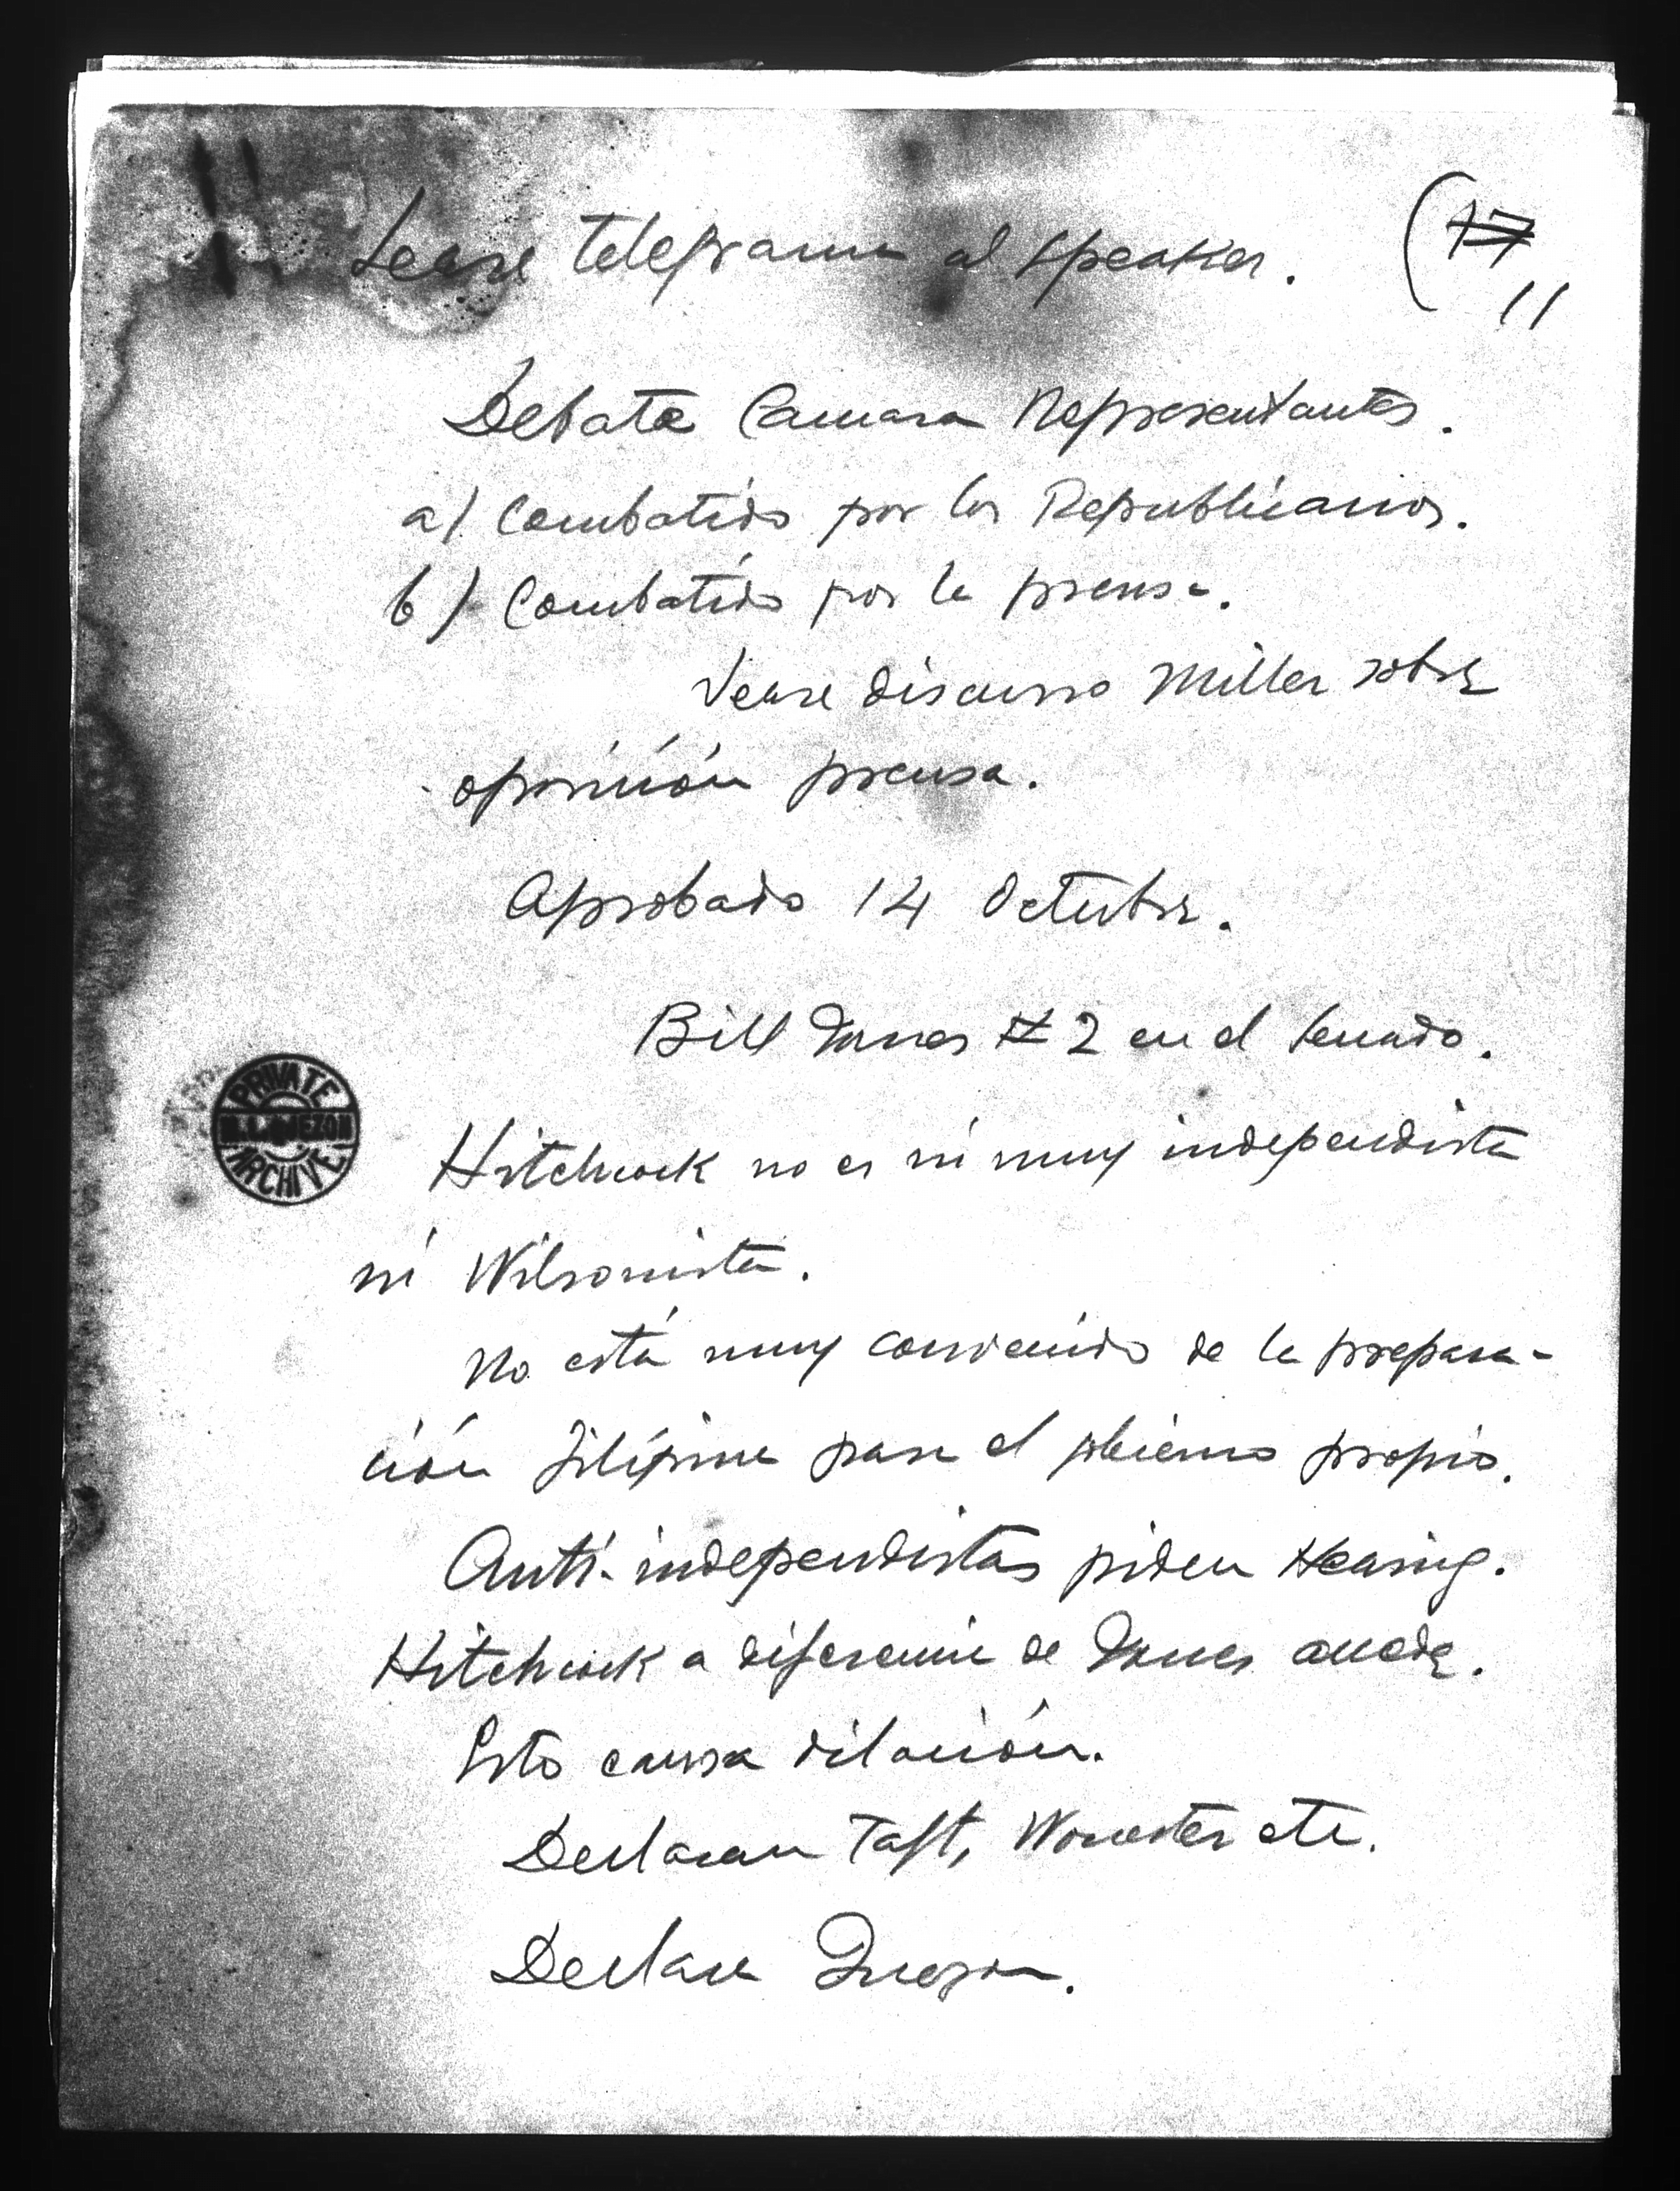 Lease telegrama al speaker. (17
11
Debate Camara Representantes.
a) Combatido por los Republicanos.
b) Combatido por la prensa.
Vease discurso Miller sobre
oposición prensa.
Aprobado 14 Octubre.
Bill Jones # 2 en el Senado.
PRIVATE
M.L. QUEZON
ARCHIVE
Hitchcock no es ni muy independista
ni Wilsonista.
No está muy convencido de la prepara-
ción filipina para el gobierno propio.
Anti-independistas piden Hearing.
Hitchcock a diferencia de Jones accede.
Esto causa dilación.
Declaran Taft, Worcester etc.
Declara Quezon.